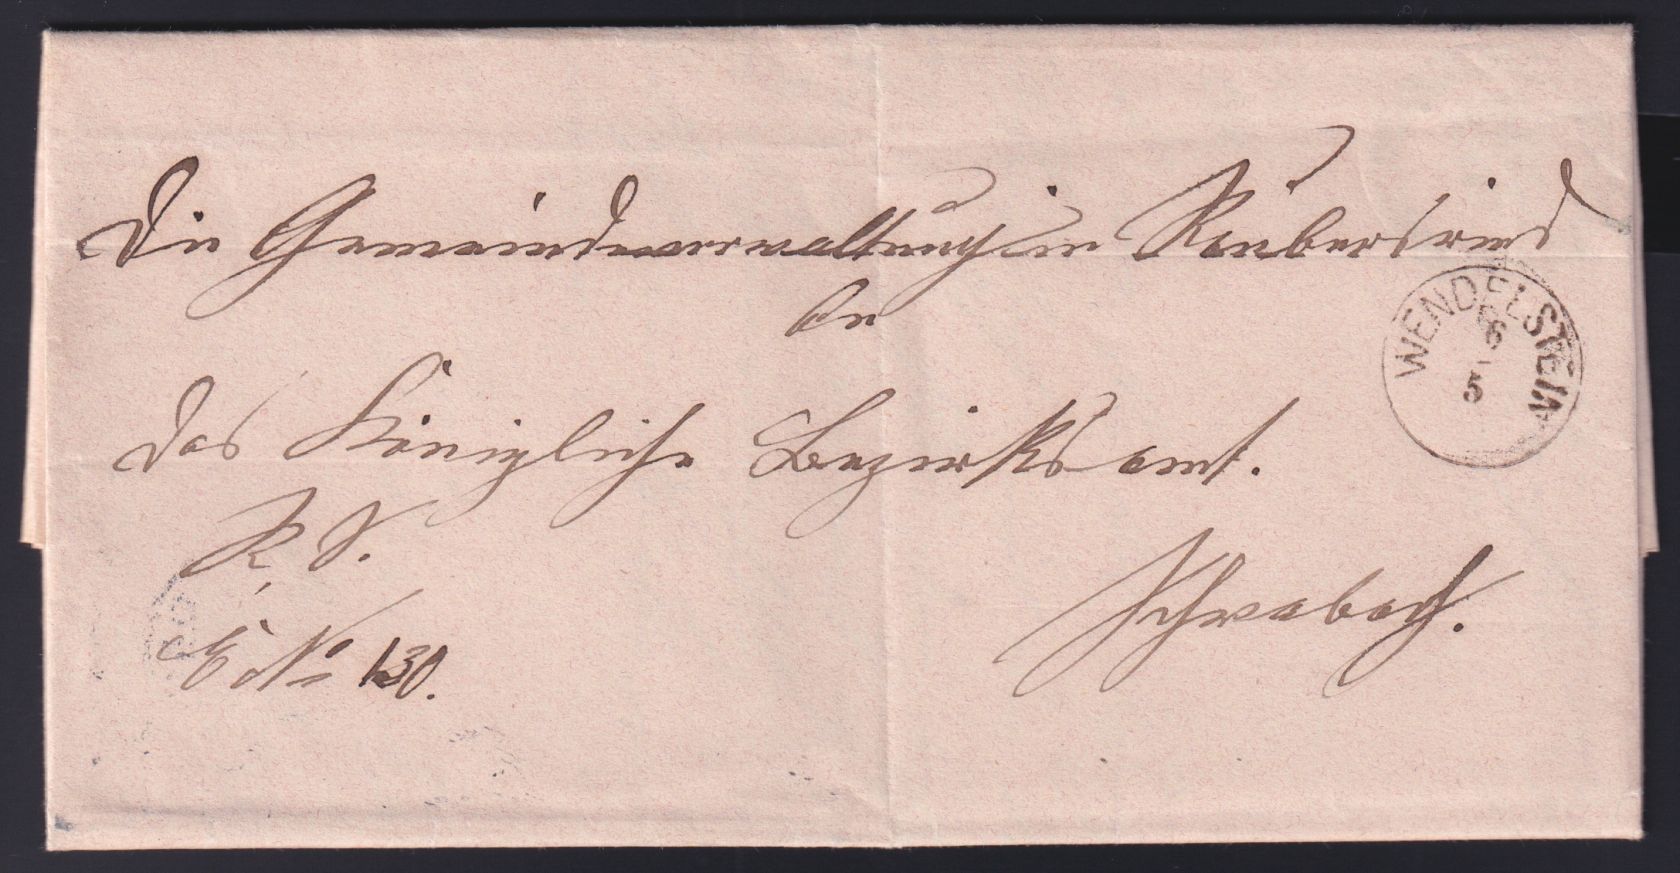 Die Gemeindeverwaltung in Raubersried
An
das Königliche Bezirksamt.
R. S.
E No 130.
Schwabach.
WENDELSTEIN
6
5